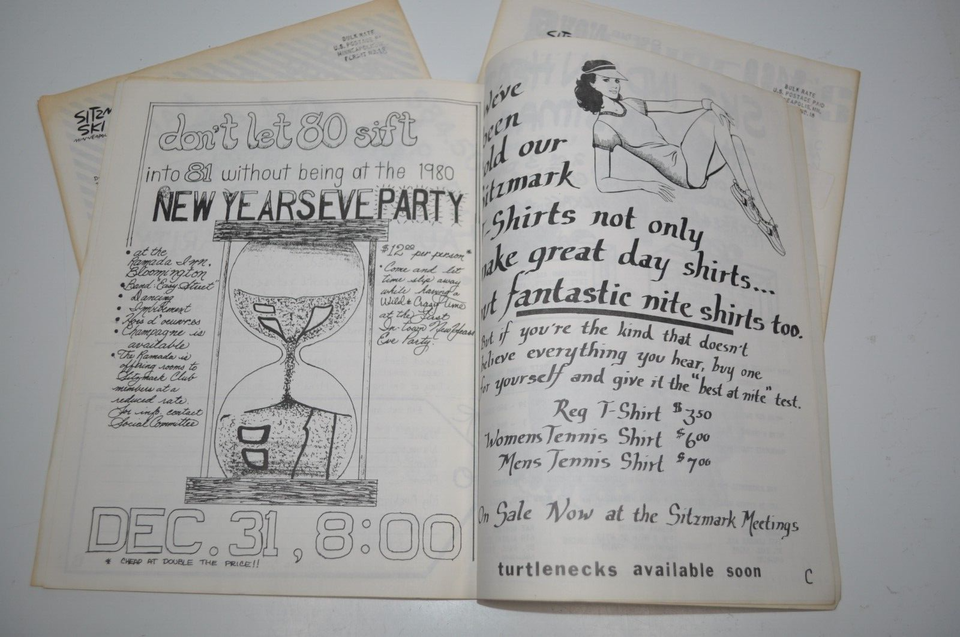 SITZM
SKI
BULK RATE
U.S. POSTAGE
MINNEAPOLIS
don't let 80 sift
into 81 without being at the 1980
NEW YEARS EVE PARTY
• at the
Ramada Inn,
Bloomington
• Band Easy Street
• Dancing
• Hors d'oeuvres
• Champagne is
available
• The Ramada is
offering rooms to
Sitzmark Club
members at a
reduced rate.
For info. contact
Social Committee
$12.00 per person*
• Come and let
time slip away
while having a
Wild & Crazy Time
at the
In-town New Years
Eve Party.
80
81
DEC. 31, 8:00
* CHEAP AT DOUBLE THE PRICE!!
SITZ
BULK RATE
U.S. POSTAGE PAID
We've
been
old our
itzmark
-Shirts not only
ake great day shirts...
ut fantastic nite shirts too.
But if you're the kind that doesn't
believe everything you hear, buy one
for yourself and give it the "best at nite" test.
Reg T-Shirt $3.50
Womens Tennis Shirt $6.00
Mens Tennis Shirt $7.00
On Sale Now at the Sitzmark Meetings
turtlenecks available soon
C